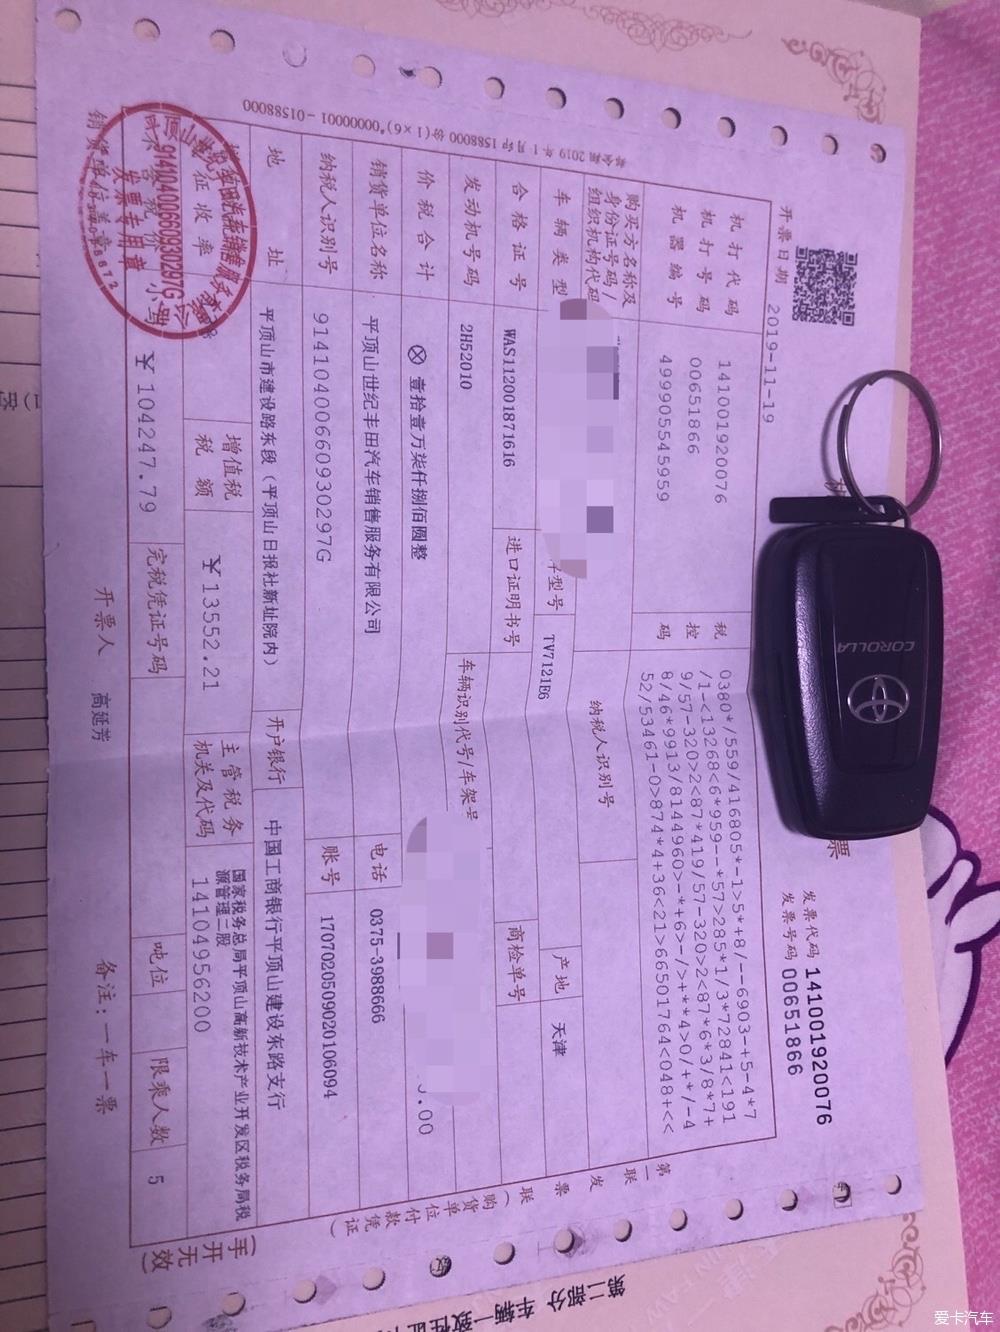 开票日期 2019-11-19
发票代码 141001920076
发票号码 00651866
票
机打代码 141001920076
机打号码 00651866
机器编号 499905545959
税控码
0380*/559/416805*-1>5*+8/--6903-+5-4*7
/1-<13268<6*959--*57>285*1/3*72841<191
9/57-320>2<87*419/57-320>2<87*6*3/8*7+
8/46*9913/8144960>-*+6>-/>+*4>0/+*/-4
52/53461-0>874*4+36<21>66501764<048+<<
购买方名称及
身份证号码/
组织机构代码
纳税人识别号
车辆类型
型号 TV7121E6
产地 天津
合格证号 WAS112001871616
进口证明书号
商检单号
发动机号码 2H52010
车辆识别代号/车架号
价税合计 ⊗壹拾壹万柒仟捌佰圆整
.00
销货单位名称 平顶山世纪丰田汽车销售服务有限公司
电话 0375-3988666
纳税人识别号 91410400660930297G
账号 1707020509020106094
地址 平顶山市建设路东段(平顶山日报社新址院内)
开户银行 中国工商银行平顶山建设东路支行
征收率
增值税
税额 ￥13552.21
主管税务
机关及代码
国家税务总局平顶山高新技术产业开发区税务局税
源管理二股
14104956200
价 小写 ￥104247.79
完税凭证号码
吨位
限乘人数 5
销货单位盖章
开票人 高延芳
备注:一车一票
第一联 发票联(购货单位付款凭证)
(手开无效)
2019年1月印1588000份(1×6)*00000001-01588000
91410400660930297G
发票专用章
COROLLA
第二部分 车辆一致性证
爱卡汽车